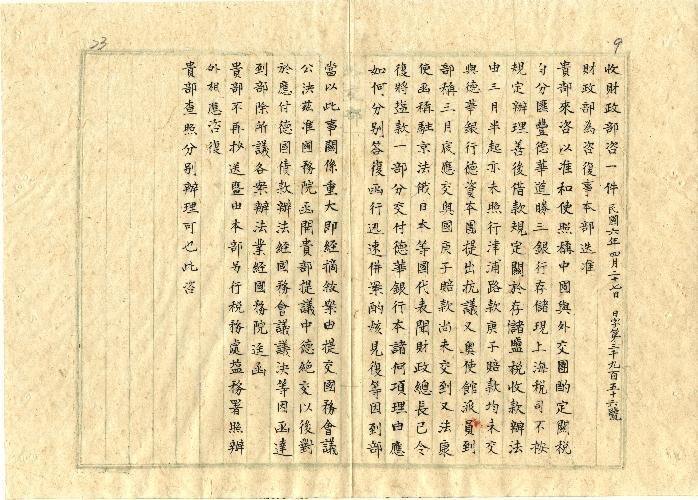 9
收財政部咨一件 民國六年四月二十七日 日字第三千九百五十六號
財政部為咨復事本部迭准
貴部來咨以准和使照稱中國與外交團酌定關稅
勻分匯豐德華道勝三銀行存儲現上海稅司不按
規定辦理善後借款規定關於存儲鹽稅收款辦法
由三月半起亦未照行津浦路款庚子賠款均未交
與德華銀行德資本團提出抗議又奧使館派員到
部稱三月底應交奧國庚子賠款尚未交到又法康
使函稱駐京法俄日本等國代表聞財政總長已令
復將鹽款一部分交付德華銀行本諸何項理由應
如何分別答復函行迅速併案酌核見復等因到部
當以此事關係重大即經摘敘案由提交國務會議
公決茲准國務院函開貴部提議中德絕交以後對
於應付德國債款辦法經國務會議議決等因函達
到部除所議各案辦法業經國務院逕函
貴部不再抄送暨由本部另行稅務處鹽務署照辦
外相應咨復
貴部查照分別辦理可也此咨
23